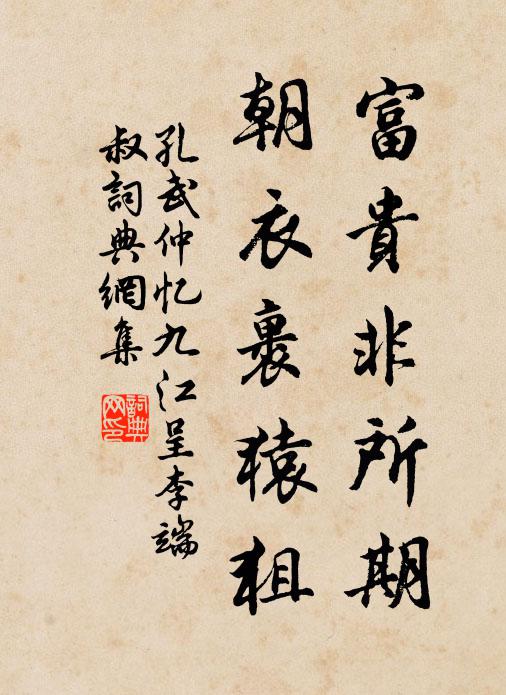 富貴非所期
朝衣裹猿狙
孔武仲忆九江呈李端
叔詞典網集
詞典网印